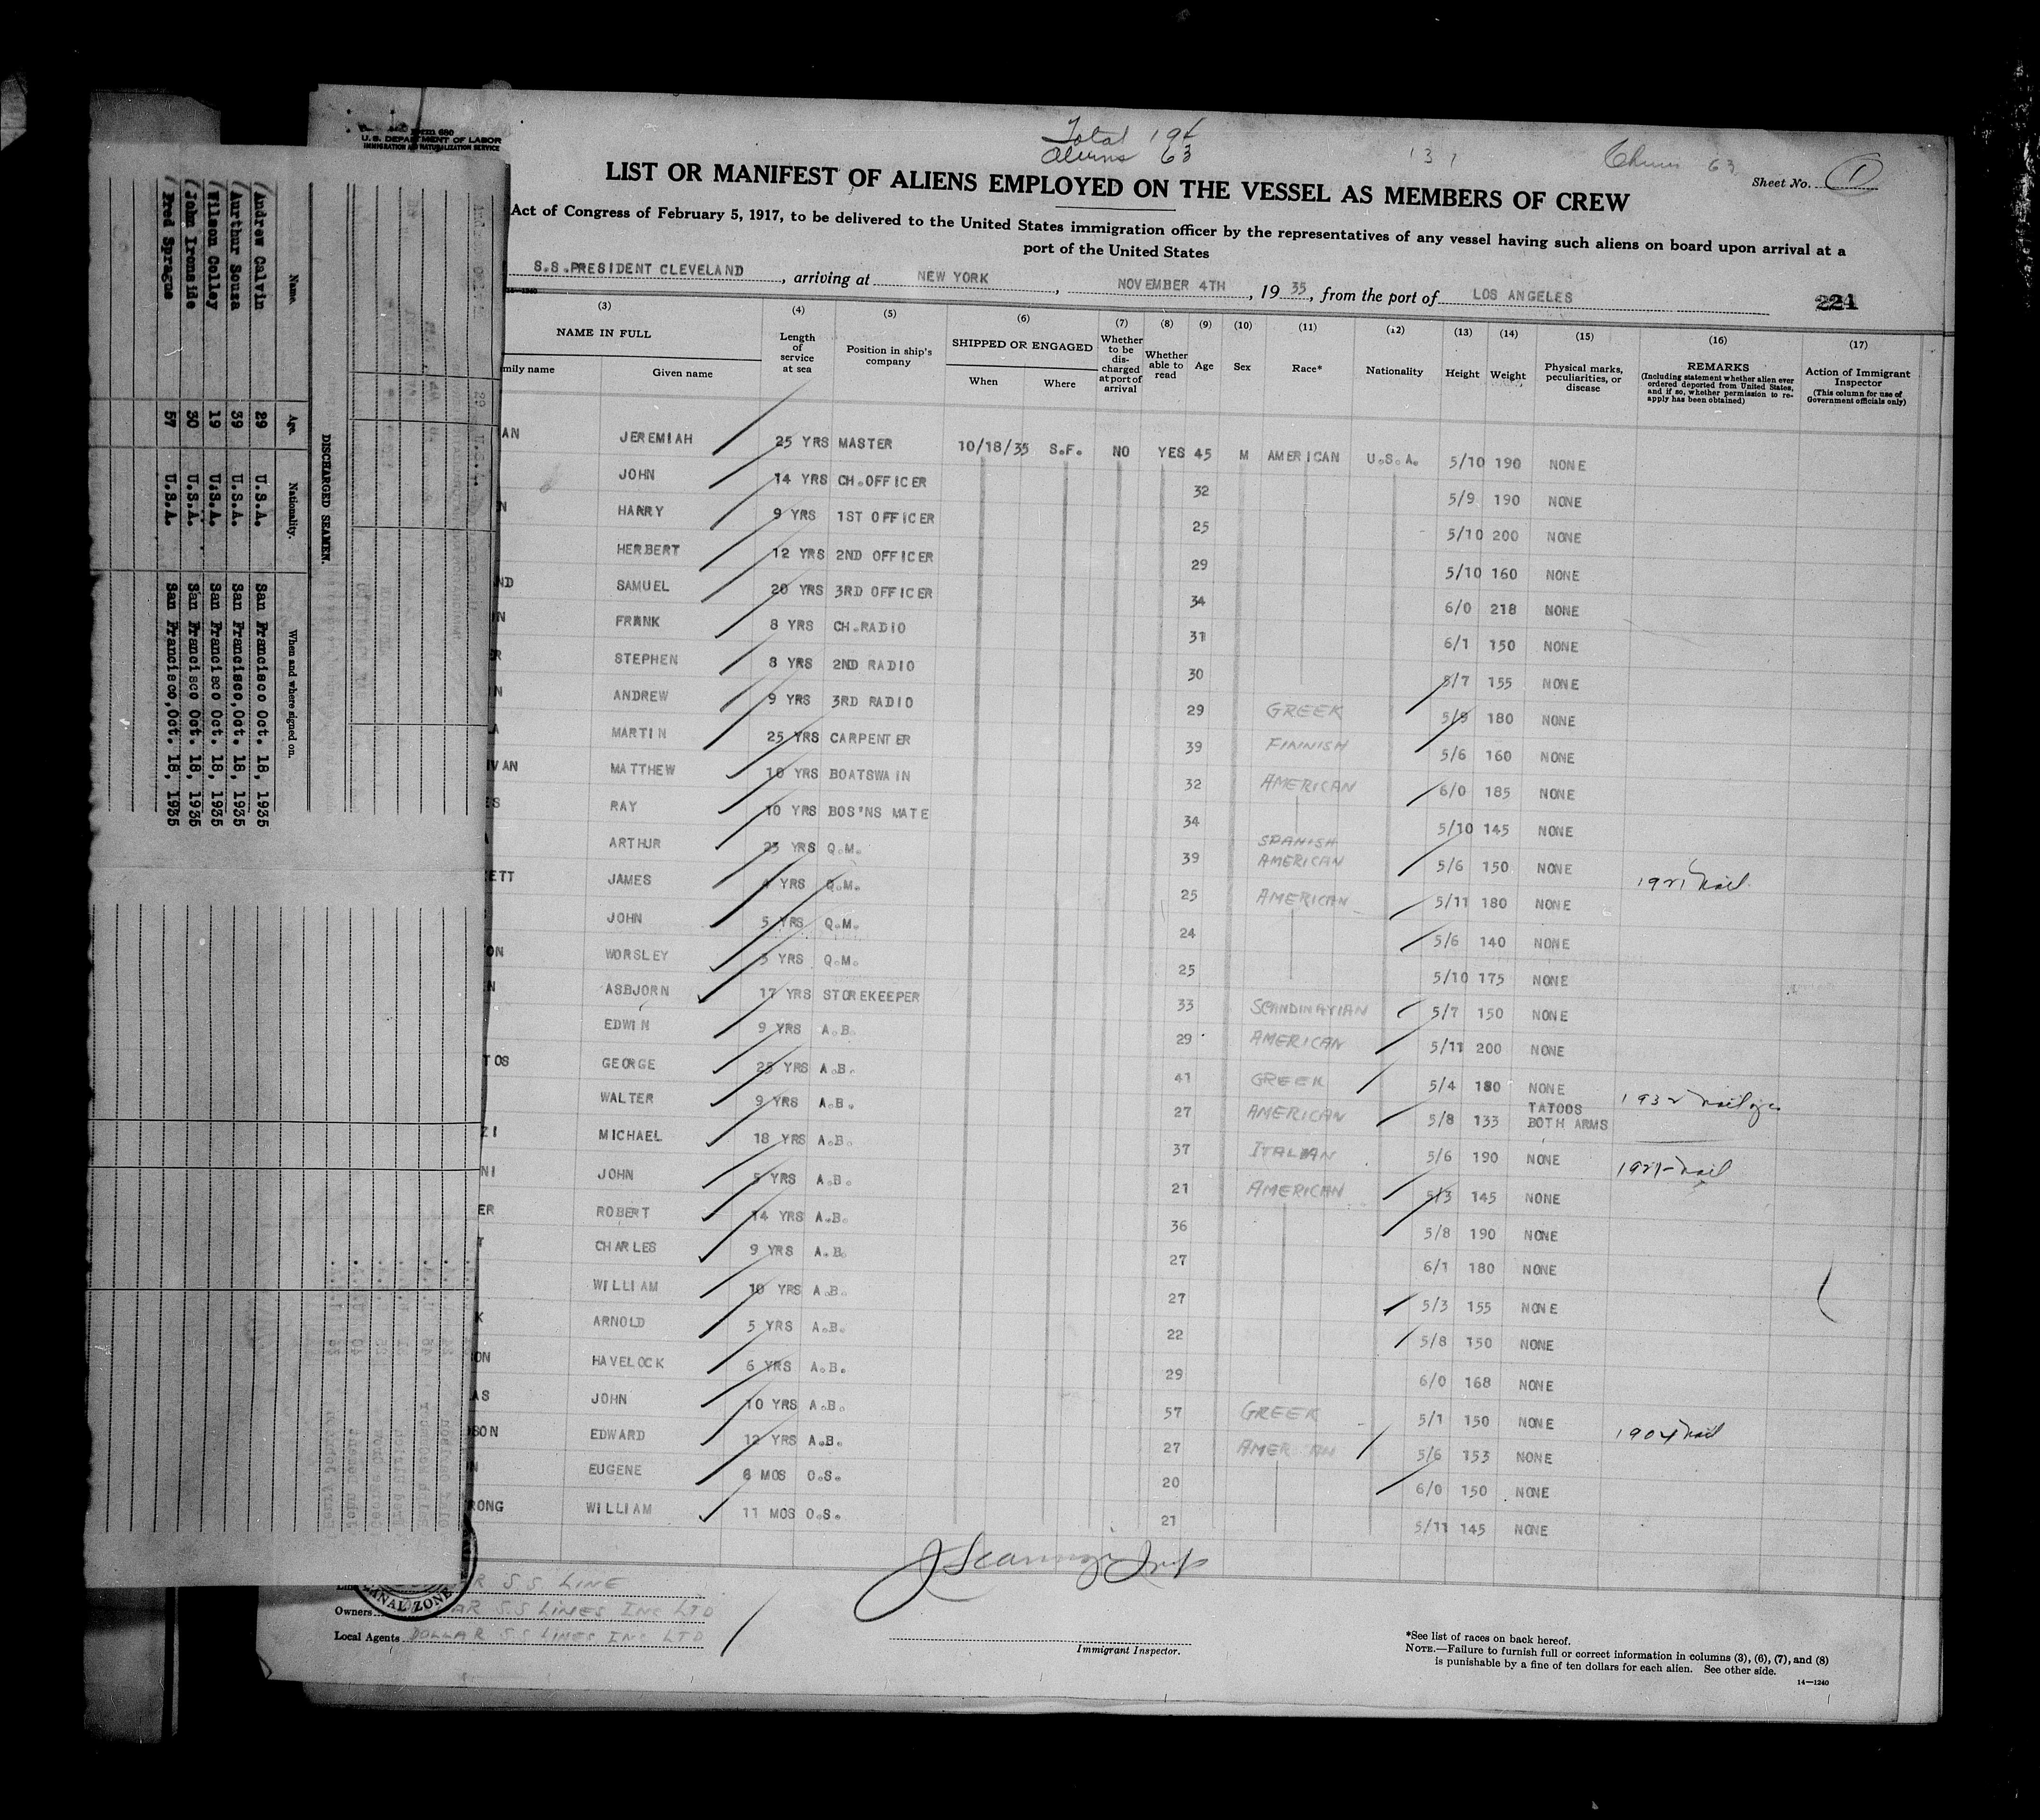 Form 680
U.S. DEPARTMENT OF LABOR
IMMIGRATION AND NATURALIZATION SERVICE
Total 19
Aliens 63
63
Sheet No. 1
LIST OR MANIFEST OF ALIENS EMPLOYED ON THE VESSEL AS MEMBERS OF CREW
Act of Congress of February 5, 1917, to be delivered to the United States immigration officer by the representatives of any vessel having such aliens on board upon arrival at a
port of the United States
S.S.PRESIDENT CLEVELAND, arriving at NEW YORK, NOVEMBER 4TH, 1935, from the port of LOS ANGELES
221
14—1240
(3) (4) (5) (6) (7) (8) (9) (10) (11) (12) (13) (14) (15) (16) (17)
NAME IN FULL
mily name Given name
Length of service at sea
Position in ship's company
SHIPPED OR ENGAGED
When Where
Whether to be discharged at port of arrival
Whether able to read
Age
Sex
Race*
Nationality
Height
Weight
Physical marks, peculiarities, or disease
REMARKS
(Including statement whether alien ever ordered deported from United States, and if so, whether permission to reapply has been obtained)
Action of Immigrant Inspector
(This column for use of Government officials only)
AN JEREMIAH 25 YRS MASTER 10/18/35 S.F. NO YES 45 M AMERICAN U.S.A. 5/10 190 NONE
JOHN 14 YRS CH.OFFICER 32 5/9 190 NONE
N HARRY 9 YRS 1ST OFFICER 25 5/10 200 NONE
HERBERT 12 YRS 2ND OFFICER 29 5/10 160 NONE
ND SAMUEL 20 YRS 3RD OFFICER 34 6/0 218 NONE
IN FRANK 8 YRS CH.RADIO 31 6/1 150 NONE
ER STEPHEN 8 YRS 2ND RADIO 30 5/7 155 NONE
N ANDREW 9 YRS 3RD RADIO 29 GREEK 5/9 180 NONE
A MARTIN 25 YRS CARPENTER 39 FINNISH 5/6 160 NONE
IVAN MATTHEW 10 YRS BOATSWAIN 32 AMERICAN 6/0 185 NONE
ES RAY 10 YRS BOS'NS MATE 34 5/10 145 NONE
A ARTHUR 23 YRS Q.M. 39 SPANISH AMERICAN 5/6 150 NONE 1921
ETT JAMES 4 YRS Q.M. 25 AMERICAN 5/11 180 NONE
JOHN 5 YRS Q.M. 24 5/6 140 NONE
ON WORSLEY 3 YRS Q.M. 25 5/10 175 NONE
N ASBJORN 17 YRS STOREKEEPER 33 SCANDINAVIAN 5/7 150 NONE
EDWIN 9 YRS A.B. 29 AMERICAN 5/11 200 NONE
TOS GEORGE 25 YRS A.B. 41 GREEK 5/4 180 NONE 1932
WALTER 9 YRS A.B. 27 AMERICAN 5/8 133 TATOOS BOTH ARMS
ZI MICHAEL 18 YRS A.B. 37 ITALIAN 5/6 190 NONE
NI JOHN 5 YRS A.B. 21 AMERICAN 5/3 145 NONE
ER ROBERT 14 YRS A.B. 36 5/8 190 NONE
T CHARLES 9 YRS A.B. 27 6/1 180 NONE
WILLIAM 10 YRS A.B. 27 5/3 155 NONE
K ARNOLD 5 YRS A.B. 22 5/8 150 NONE
ON HAVELOCK 6 YRS A.B. 29 6/0 168 NONE
AS JOHN 10 YRS A.B. 57 GREEK 5/1 150 NONE 1904
SON EDWARD 12 YRS A.B. 27 AMERICAN 5/6 153 NONE
N EUGENE 6 MOS O.S. 20 6/0 150 NONE
RONG WILLIAM 11 MOS O.S. 21 5/11 145 NONE
R S.S LINE
Owners AR S.S LINES INC LTD
Local Agents DOLLAR S.S LINES INC LTD
CANAL ZONE
Immigrant Inspector.
*See list of races on back hereof.
NOTE.—Failure to furnish full or correct information in columns (3), (6), (7), and (8)
is punishable by a fine of ten dollars for each alien. See other side.
14—1240
DISCHARGED SEAMEN.
Name. Age. Nationality. When and where signed on.
Andrew Calvin 29 U.S.A. San Francisco Oct. 18, 1935
Aurthur Souza 39 U.S.A. San Francisco,Oct. 18, 1935
Wilson Colley 19 U.S.A. San Francisco Oct. 18, 1935
John Ironside 30 U.S.A. San Francisco Oct. 18, 1935
Fred Sprague 57 U.S.A. San Francisco,Oct. 18, 1935